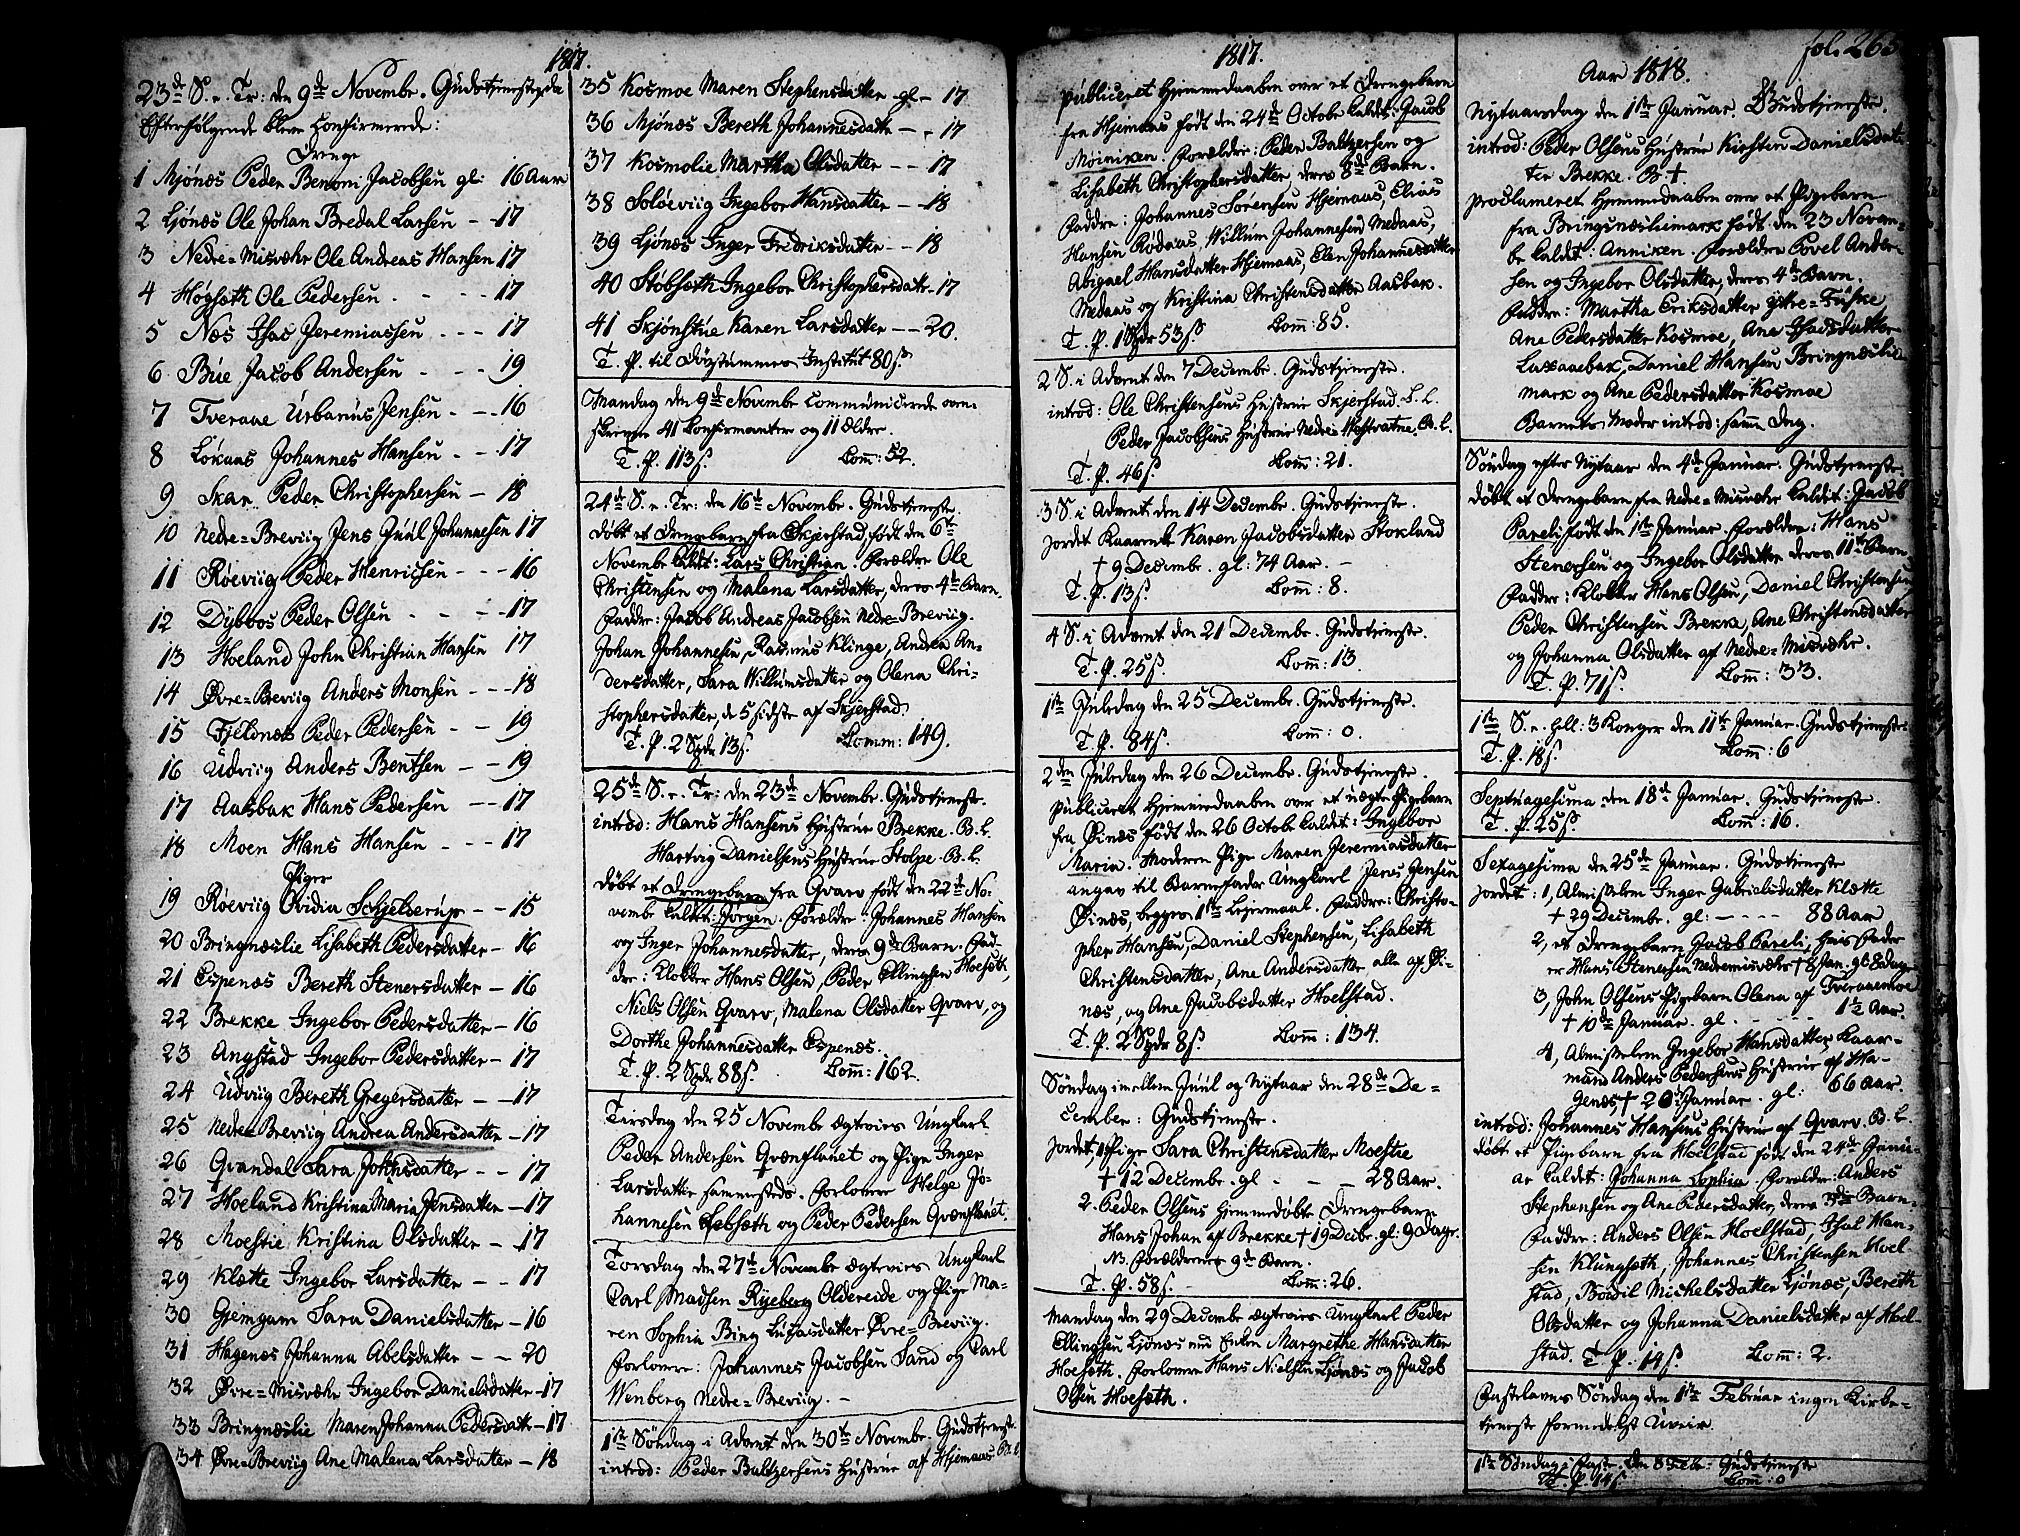 1817.
23de S. e. Tr: den 9de Novembr. Gudstjeneste, da
Efterfølgende bleve Confirmerede:
Drenge
1 Mjønæs Peder Benoni Jacobsen gl: 16 Aar
2 Ljønæs Ole Johan Bredal Larsen - 17
3 Nedre-Misvæhr Ole Andreas Hansen 17
4 Høgseth Ole Pedersen - 17
5 Næs Isac Jeremiassen - - - 17
6 Bue Jacob Andersen - - - 19
7 Tveraae Urbanus Jensen - - 16
8 Løkaas Johannes Hansen - - 17
9 Skar Peder Christophersen - 18
10 Nedre-Breviig Jens Juul Johannesen 17
11 Røeviig Peder Henrichsen - - - 16
12 Dybvos Peder Olsen - - 17
13 Hoeland John Christian Hansen 17
14 Øvre-Breviig Anders Monsen - - - 18
15 Fjeldnæs Peder Pedersen - - 19
16 Udviig Anders Bentsen - - 19
17 Aasbak Hans Pedersen - - 17
18 Moen Hans Hansen - - - 17
Piger
19 Røeviig Ovidia Schjelderup - - 15
20 Bringnæslie Lisabeth Pedersdatter - 16
21 Espenæs Bereth Stenersdatter - 16
22 Brekke Ingebor Pedersdatter - 16
23 Angstad Ingebor Pedersdatter - 17
24 Udviig Bereth Gregersdatter - - 17
25 Nedre-Breviig Andrea Andersdatter - 17
26 Qvandal Sara Johnsdatter - - 17
27 Hoeland Kristina Maria Jensdatter - 17
28 Moestie Kristina Olsdatter - - 17
29 Klætte Ingebor Larsdatter - - 17
30 Gjemgam Sara Danielsdatter - 16
31 Hagenæs Johanna Abelsdatter - - 20
32 Øvre-Misvæhr Ingebor Danielsdatter - 17
33 Bringnæslie Maren Johanna Pedersdatt - 17
34 Øvre-Breviig Ane Malena Larsdatter - 18
35 Kosmoe Maren Stephensdatter gl - 17
36 Mjønæs Bereth Johannesdattr - - 17
37 Kosmolie Martha Olsdatter - - 17
38 Soløeviig Ingebor Hansdatter - - 18
39 Ljønæs Inger Fredriksdatter - - 18
40 Støbseth Ingebor Christophersdatr - 17
41 Skjønstue Karen Larsdatter - - 20.
T. P. til Døvstummes Institut 80 s.
Mandag den 9de Novembr Communicerede oven-
skrevne 41 Confirmanter og 11 Ældre.
T. P. 113 s. Com: 52.
24de S. e. Tr: den 16de Novembr. Gudstjeneste.
døbt et Drengebarn fra Skjerstad, født den 6te
Novembr kaldt: Lars Christian. Forældre Ole
Christensen og Malena Larsdatter, deres 4de Barn.
Faddre: Jacob Andreas Jacobsen Nedre-Breviig.
Johan Johannesen, Rasmus Klinge, Andrea An-
dersdatter, Sara Willumsdatter og Olena Chri-
stophersdatter, de 5 sidste af Skjerstad.
T. P. 2 Spdr 13 s. Comm: 149.
25de S. e. Tr: den 23de Novembr. Gudstjeneste.
introd: Hans Hansens Hustrue Brekke. B. L.
Hartvig Danielsens Hustrue Stolpe. B. L.
døbt et Drengebarn fra Qvarv født den 22de No-
vembr kaldt: Jørgen. Forældre: Johannes Hansen
og Inger Johannesdatter, deres 9de Barn. Fad-
dre: Klokker Hans Olsen, Peder Ellingsen Hoeseth,
Niels Olsen Qvarv, Malena Olsdatter Qvarv, og
Dorthe Johannesdatter Espenæs.
T. P. 2 Spdr 88 s. Com: 162.
Tirsdag den 25 Novembr ægtevies Ungkarl
Peder Andersen Qvænflaaet og Pige Inger
Larsdatter sammesteds. Forlovere Helge Jo-
hannesen Løbseth og Peder Pedersen Qvænflaaet.
Torsdag den 27de Novembr ægtevies Ungkarl
Carl Madsen Ryeberg Oldereide og Pige Ma-
ren Sophia Bing Lucasdatter Øvre-Breviig.
Forlovere: Johannes Jacobsen Sand og Carl
Wenberg Nedre-Breviig. -
1ste Søndag i Advent den 30te Novembr. Gudstjeneste.
introd: Peder Baltzersens Hustrue af Hjemaas B. L.
1817.
publiceret Hjemmedaaben over et Drengebarn
fra Hjemaas født den 24de Octobr kaldt: Jacob
Meiniken. Forældre: Peder Baltzersen og
Lisabeth Christophersdatter, deres 8de Barn.
Faddre: Johannes Sørensen Hjemaas, Elias
Hansen Rødaas, Willum Johannesen Medaas,
Abigael Hansdatter Hjemaas, Elen Johannesdatter
Medaas og Kristina Christensdatter Aasbak.
T. P. 1 Spdr 53 s. Com: 85.
2 S. i Advent den 7 Decembr. Gudstjeneste.
introd: Ole Christensens Hustrue Skjerstad. B. L.
Peder Jacobsens Hustrue Nedre Vestvatne. B. L.
T. P. 46 s. Com: 21.
3 S. i Advent den 14 Decembr. Gudstjeneste.
Jordet Kaarenke Karen Jacobsdatter Stokland
+ 9 Decembr. gl: 74 Aar. -
T. P. 13 s. Com: 8.
4 S. i Advent den 21 Decembr. Gudstjeneste.
T. P. 25 s. Com: 13.
1ste Juledag den 25 Decembr. Gudstjeneste.
T. P. 84 s. Com: 0.
2den Juledag den 26 Decembr. Gudstjeneste.
publiceret Hjemmedaaben over et uægte Pigebarn
fra Øinæs født den 26 Octobr kaldt: Ingebor
Maria. Moderen Pige Maren Jeremiasdatter
angav til Barnefader Ungkarl Jens Jensen
Øinæs, begges 1ste Leiermaal. Faddre: Christo-
pher Hansen, Daniel Stephensen, Lisabeth
Christensdatter, Ane Andersdatter alle af Øi-
næs, og Ane Jacobsdatter Hoelstad.
T. P. 2 Spdr 8 s. Com: 134.
Søndag imellem Juul og Nytaar den 28de De-
cember: Gudstjeneste.
Jordet, 1 Pige Sara Christensdatter Moestie
+ 12 Decembr. gl - - - 28 Aar.
2. Peder Olsens hjemmedøbte Drengebarn
Hans Johan af Brekke + 19 Decbr. gl: 9 Dage.
NB Forældrenes 9de Barn.
T. P. 58 s. Com: 26.
Mandag den 29 Decembr ægtevies Ungkarl Peder
Ellingsen Ljønæs med Enken Margrethe Hansdatter
Hoeseth. Forlovere Hans Nielsen Ljønæs og Jacob
Olsen Hoeseth.
fol. 263
Aar 1818.
Nytaarsdag den 1ste Januar. Gudstjeneste.
introd: Peder Olsens Hustrue Kirsten Danielsdat-
ter Brekke. B. +
proclameret Hjemmedaaben over et Pigebarn
fra Bringnæsliemark født den 23 Novem-
br kaldt: Anniken. Forældre Povel Ander-
sen og Ingebor Olsdatter, deres 4de Barn.
Faddre: Martha Eriksdatter Ytre-Fuske
Ane Pedersdatter Kosmoe, Ane Isacsdatter
Laxaaebak, Daniel Hansen Bringnæslie
mark og Ane Pedersdatter Kosmoe
Barnets Moder introd: samme Dag.
Søndag efter Nytaar den 4de Januar. Gudstjeneste.
døbt et Drengebarn fra Nedre-Misvæhr kaldt: Jacob
Pareli født den 1ste Januar. Forældre: Hans
Stenersen og Ingebor Olsdatter deres 11te Barn.
Faddre: Klokker Hans Olsen, Daniel Christensen,
Peder Christensen Brekke, Ane Christensdatter
og Johanna Olsdatter af Nedre-Misvæhr.
T. P. 71 s. Com: 33.
1ste S. e. hell: 3 Konger den 11te Januar. Gudstjeneste.
T. P. 18 s. Com: 6
Septuagesima den 18de Januar. Gudstjeneste.
T. P. 25 s. Com: 16.
Sexagesima den 25de Januar. Gudstjeneste
Jordet: 1, Almisselem Inger Gabrielsdatter Klætte
+ 29 Decembr. gl: - - - - 88 Aar
2, et Drengebarn Jacob Pareli, hvis Fader
er Hans Stenersen Nedremisvæhr + 8 Jan. gl: 8 dage
3, John Olsens Pigebarn Olena af Tveraaemoe
+ 10de Januar. gl - - - - 1½ Aar.
4, Almisselem Ingebor Hansdatter Kaar-
mand Anders Pedersens Hustrue af Ha-
genæs + 20 Januar. gl: 66 Aar.
introd: Johannes Hansens Hustrue af Qvarv. B. L.
døbt et Pigebarn fra Hoelstad født den 24de Janu-
ar kaldt: Johanna Sophia. Forældre: Anders
Stephensen og Ane Pedersdatter, deres 3de Barn.
Faddre: Anders Olsen Hoelstad, Isak Han-
sen Klungseth, Johannes Christensen Hoel-
stad, Bodil Michelsdatter Ljønæs, Bereth
Olsdatter og Johanna Danielsdatter af Hoel-
stad. T. P. 14 s. Com: 2.
Fastelavns Søndag den 1ste Februar ingen Kirke-
tjeneste formedelst Uveir.
1ste Søndag i Faste. den 8 Febr: Gudstjeneste
T. P. 14 s. Com: 0